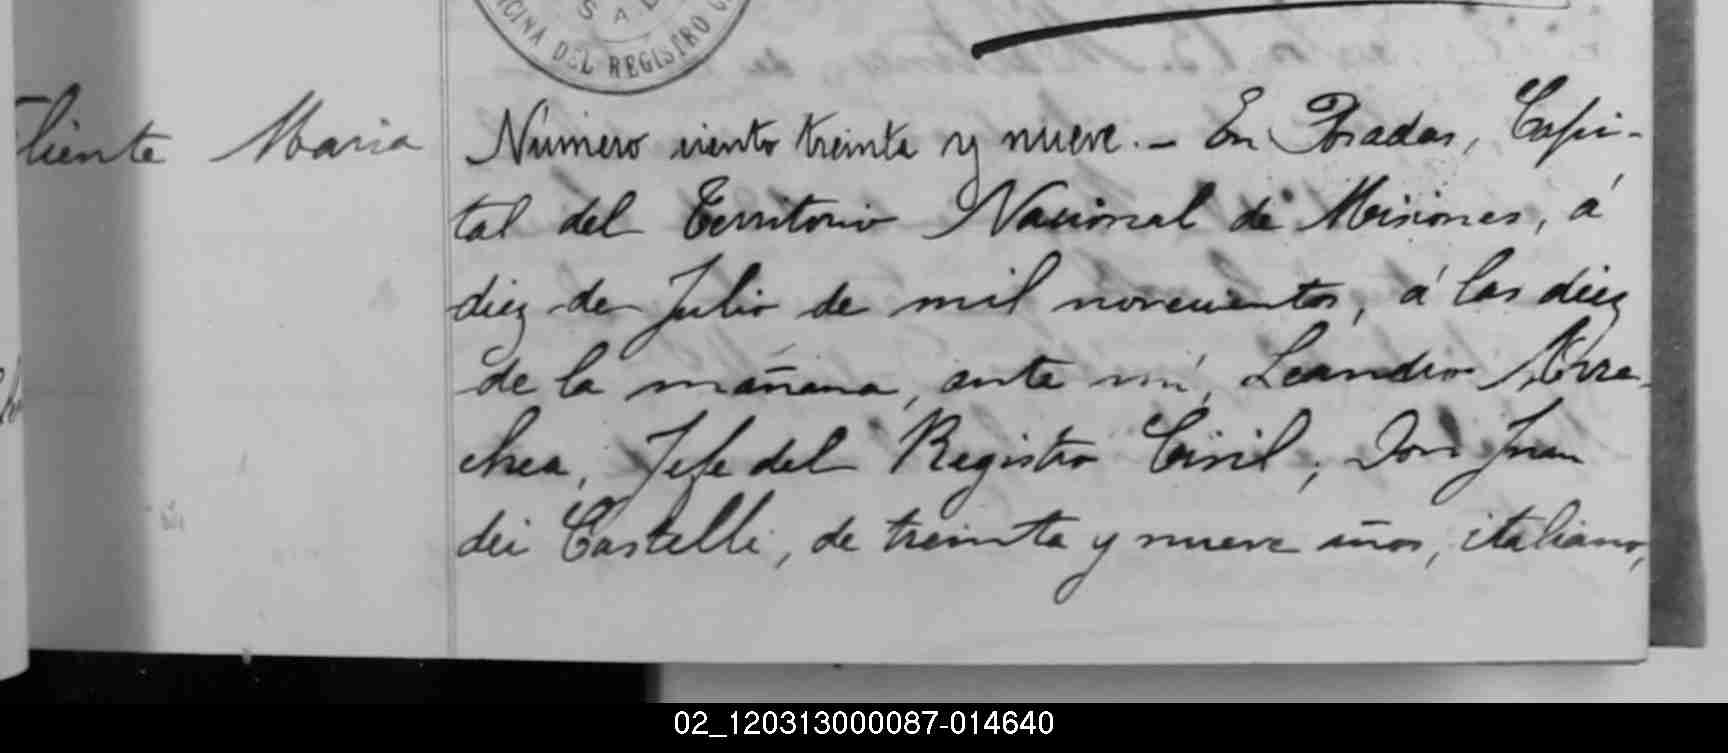 OFICINA DEL REGISTRO
liente Maria
Número ciento treinta y nueve. - En Posadas, Capi-
tal del Territorio Nacional de Misiones, á
diez de Julio de mil novecientos, á las diez
de la mañana, ante mí, Leandro Arre-
chea, Jefe del Registro Civil, Don Juan
dei Castelli, de treinta y nueve años, italiano,
02_120313000087-014640